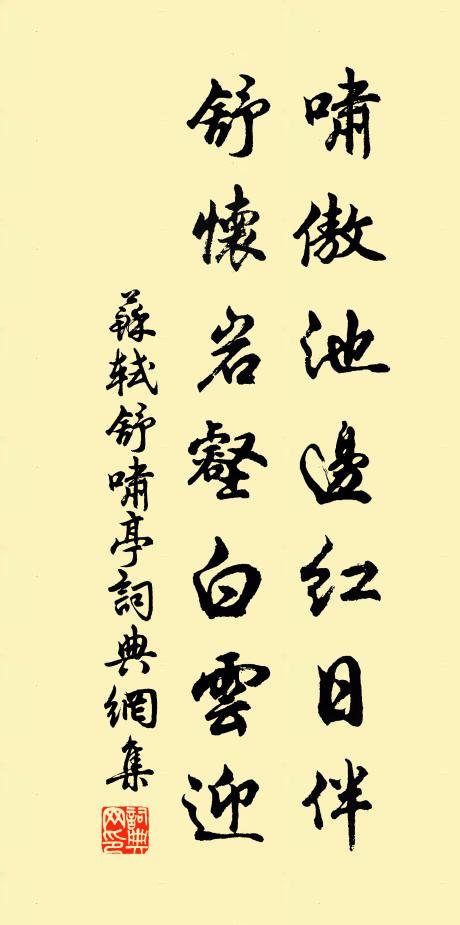 嘯傲池邊紅日伴
舒懷岩壑白雲迎
蘇軾舒嘯亭詞典網集
詞典網印